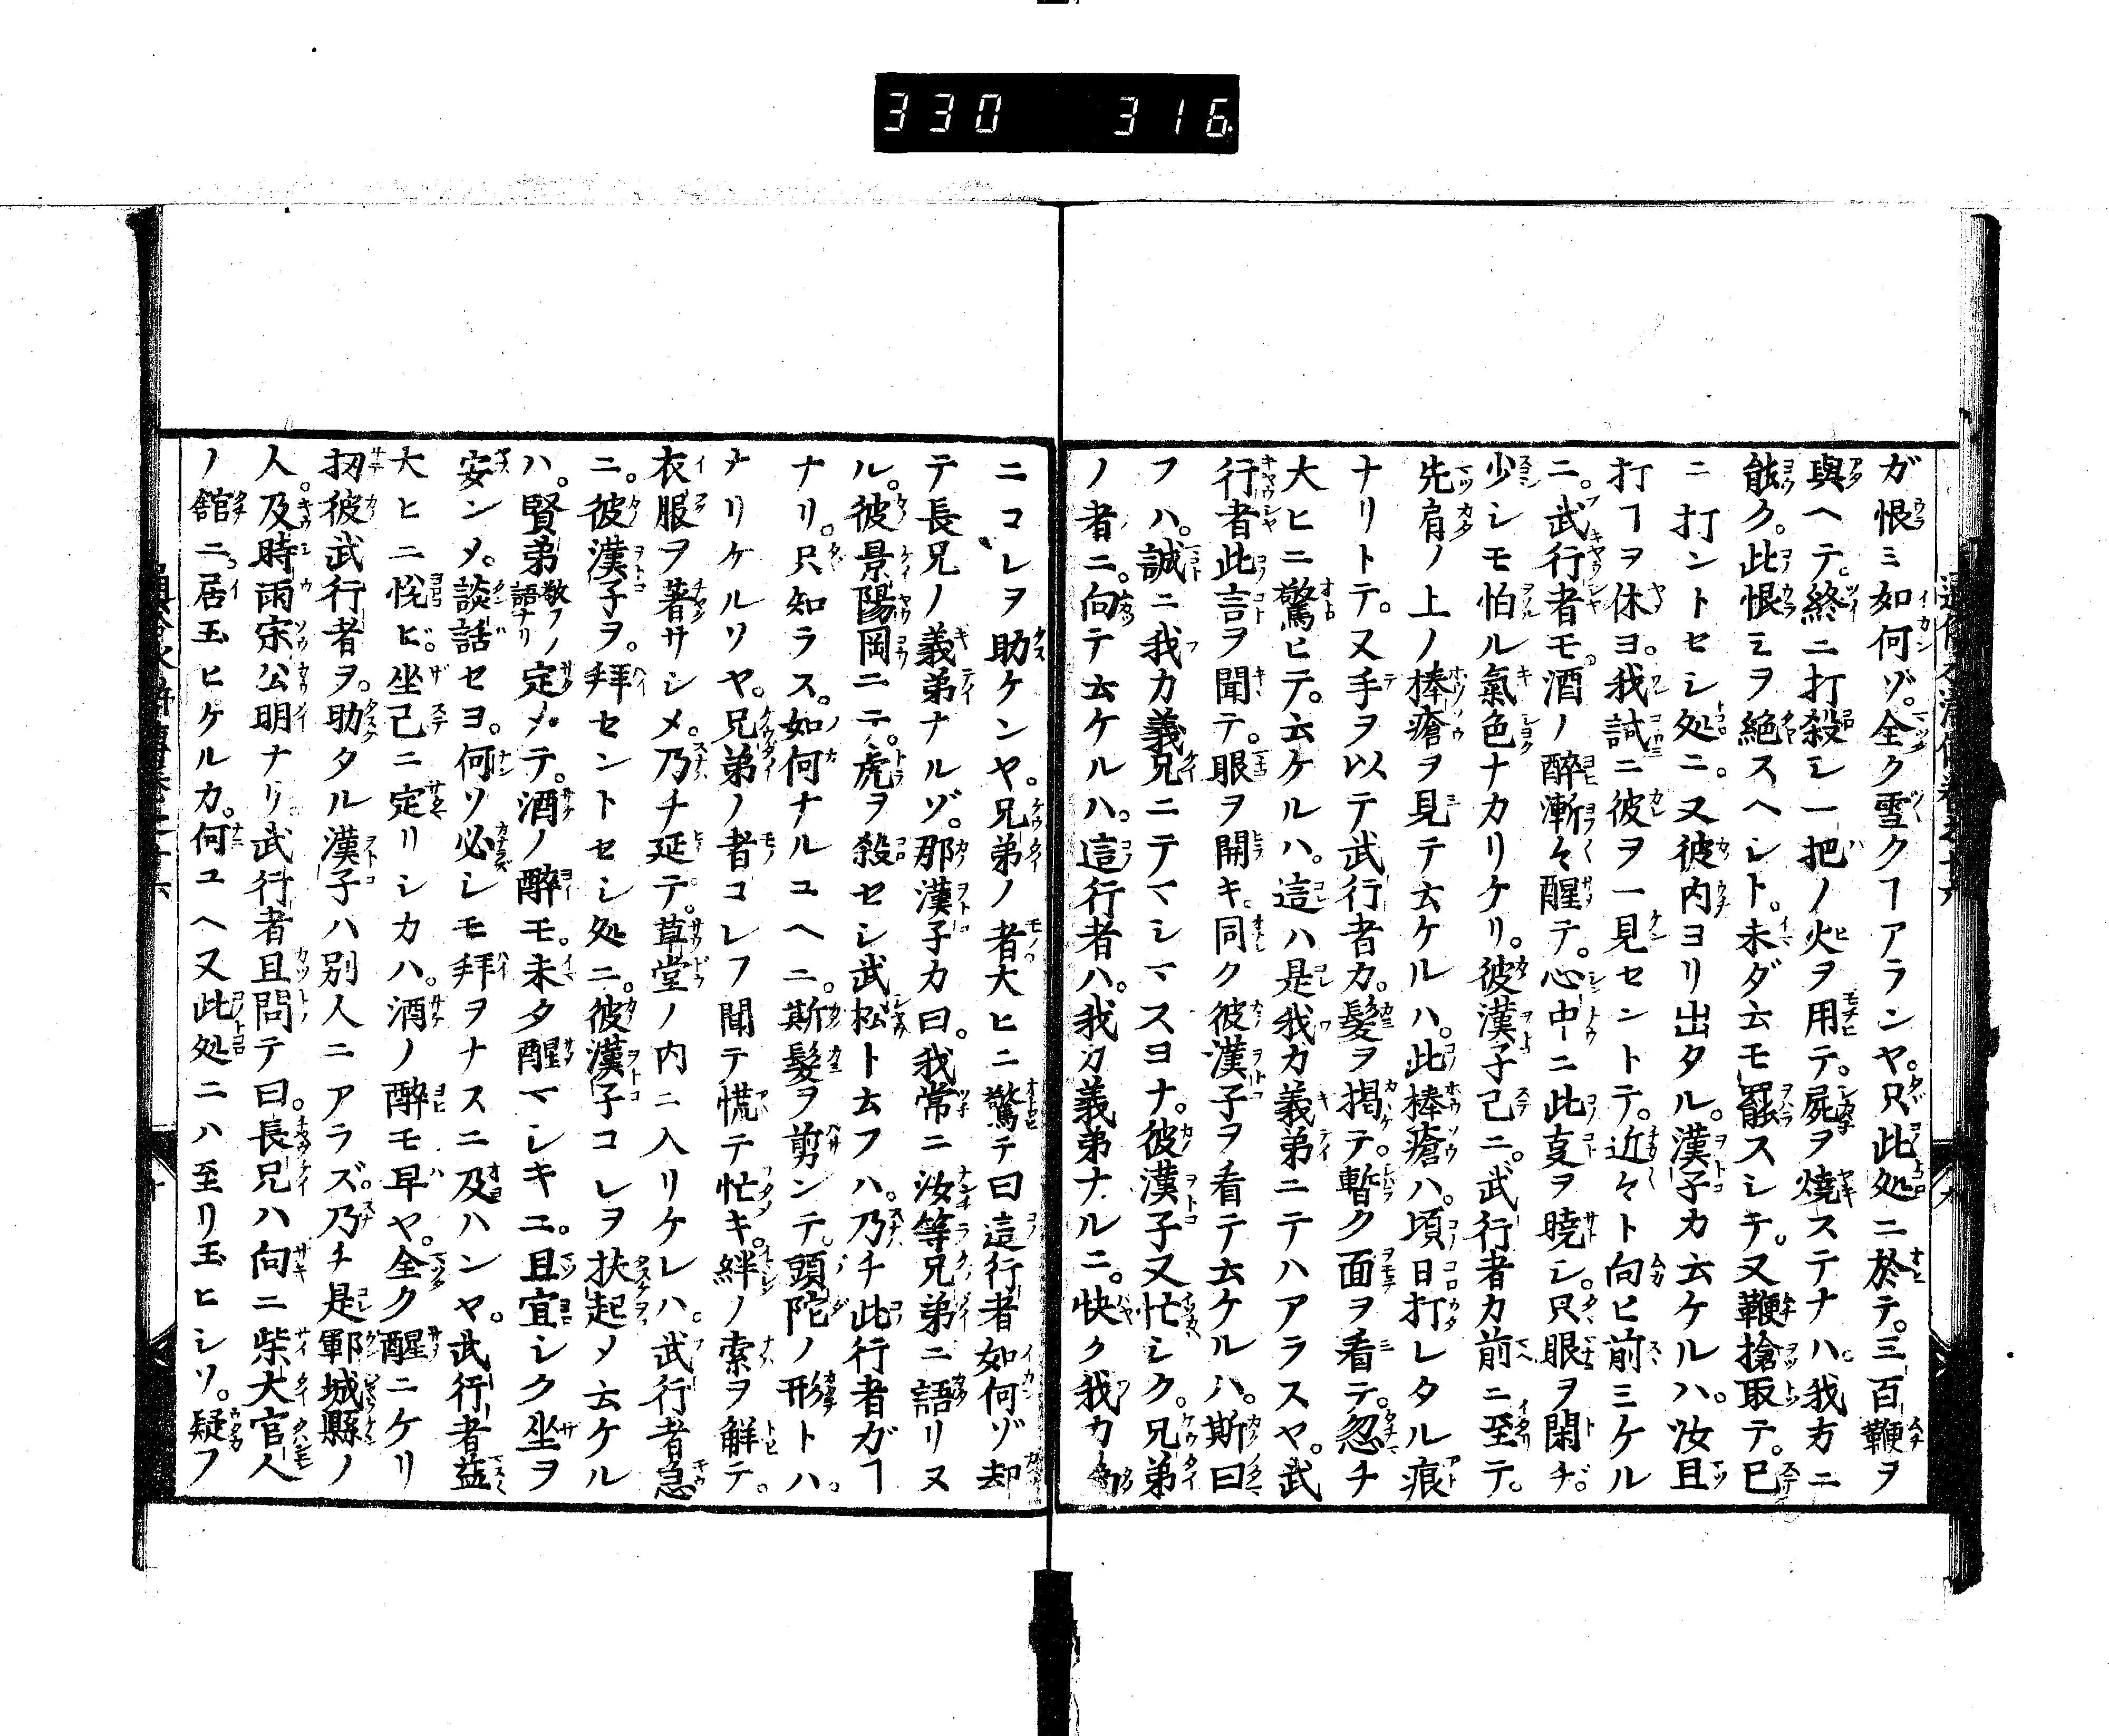 330 316
ガ恨ミ如何ゾ。全ク雪クヿアランヤ。只此処ニ於テ。三百鞭ヲ
與ヘテ。終ニ打殺シ一把ノ火ヲ用テ。屍ヲ燒ステナハ。我方ニ
能ク。此恨ミヲ絶スヘシト。未ダ云モ罷スシテ。又鞭搶取テ。已
ニ打ントセシ処ニ。又彼内ヨリ出タル。漢子カ云ケルハ。汝且
打ヿヲ休ヨ。我試ニ彼ヲ一見セントテ。近々ト向ヒ前ミケル
ニ。武行者モ酒ノ醉漸々醒テ。心中ニ此叓ヲ曉シ。只眼ヲ閑ヂ。
少シモ怕ル氣色ナカリケリ。彼漢子己ニ。武行者カ前ニ至テ。
先肩ノ上ノ棒瘡ヲ見テ云ケルハ。此棒瘡ハ。頃日打レタル痕
ナリトテ。又手ヲ以テ武行者カ。髪ヲ掲テ。暫ク面ヲ看テ。忽チ
大ヒニ驚ヒテ。云ケルハ。這ハ是我カ義弟ニテハアラスヤ。武
行者此言ヲ聞テ。眼ヲ開キ。同ク彼漢子ヲ看テ云ケルハ。斯曰
フハ。誠ニ我カ義兄ニテマシマスヨナ。彼漢子又忙シク。兄弟
ノ者ニ。向テ云ケルハ。這行者ハ。我カ義弟ナルニ。快ク我カ為
ニコレヲ助ケンヤ。兄弟ノ者大ヒニ驚テ曰這行者如何ゾ却
テ長兄ノ義弟ナルゾ。那漢子カ曰。我常ニ汝等兄弟ニ語リヌ
ル。彼景陽岡ニテ。虎ヲ殺セシ武松ト云フハ。乃チ此行者ガヿ
ナリ。只知ラス。如何ナルユヘニ。斯髪ヲ剪ンテ。頭陀ノ形トハ。
ナリケルリヤ。兄弟ノ者コレフ聞テ慌テ忙キ。絆ノ索ヲ解テ。
衣服ヲ著サシメ。乃チ延テ。草堂ノ内ニ入リケレハ。武行者急
ニ。彼漢子ヲ。拜セントセシ処ニ。彼漢子コレヲ扶起メ云ケル
ハ。賢弟敬フノ語ナリ定メテ。酒ノ醉モ。未タ醒マシキニ。且宜シク坐ヲ
安ンメ。談話セヨ。何ソ必シモ拜ヲナスニ及ハンヤ。武行者益
大ヒニ悦ビ。坐己ニ定リシカハ。酒ノ醉モ早ヤ。全ク醒ニケリ
扨彼武行者ヲ。助タル漢子ハ別人ニアラズ。乃チ是鄆城縣ノ
人。及時雨宋公明ナリ。武行者且問テ曰。長兄ハ向ニ柴大官人
ノ舘ニ。居玉ヒケルカ。何ユヘ又此処ニハ至リ玉ヒシソ。疑フ